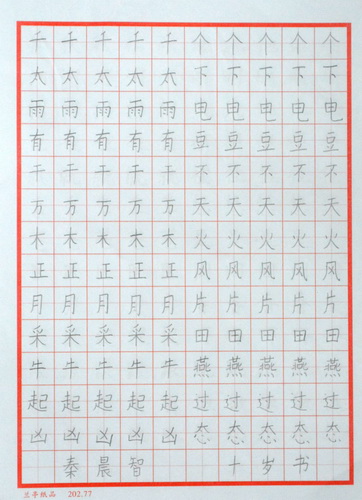 千千千千千个个个个个
太太太太太下下下下下
雨雨雨雨雨电电电电电
有有有有有豆豆豆豆豆
干干干干干不不不不不
万万万万万天天天天天
木木木木木火火火火火
正正正正正风风风风风
月月月月月片片片片片
采采采采采田田田田田
牛牛牛牛牛燕燕燕燕燕
起起起起起过过过过过
凶凶凶凶凶态态态态态
秦晨智 十岁书
兰亭纸品 202.77